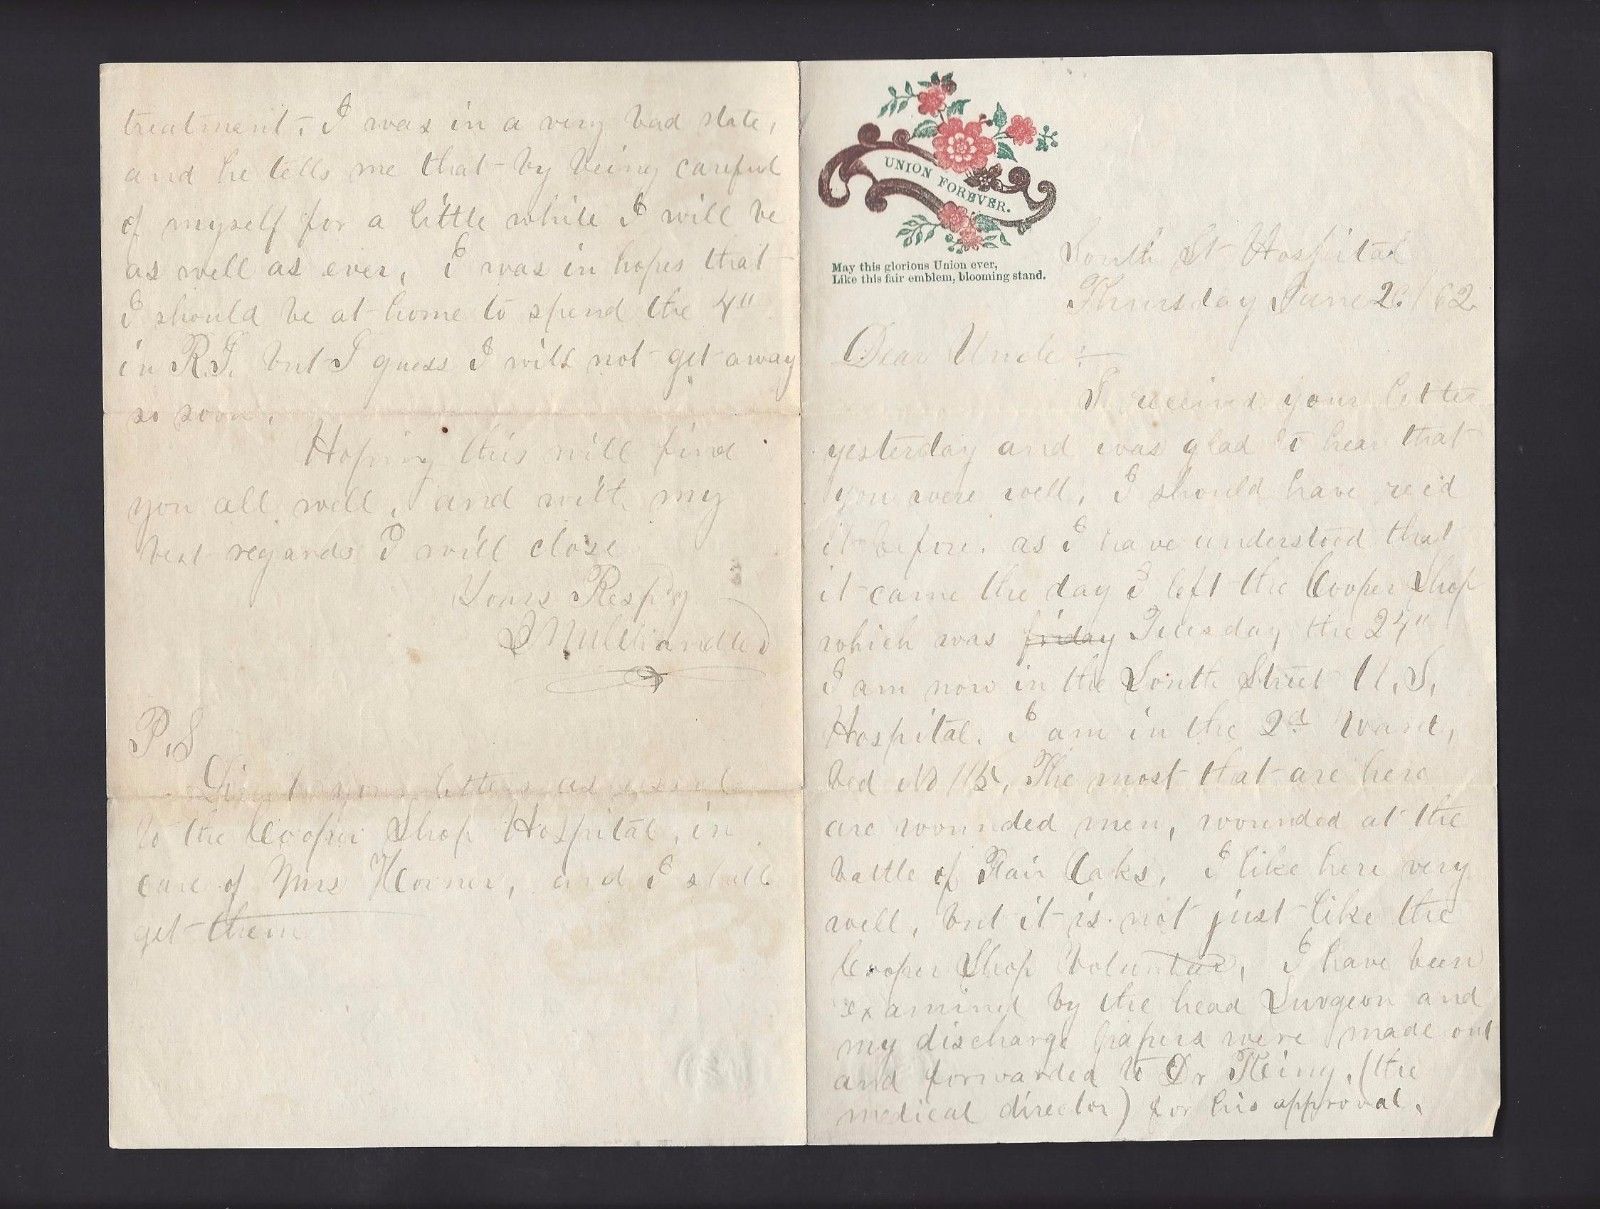 UNION FOREVER.
May this glorious Union ever,
Like this fair emblem, blooming stand.
South St Hospital
Thursday June 2 /62
Dear Uncle :—
I received your letter
yesterday and was glad to hear that
you were well, I should have rec'd
it before. as I have understood that
it came the day I left the Cooper Shop
which was friday Tuesday the 24"
I am now in the South Street U. S.
Hospital. I am in the 2d Ward,
bed No 115. The most that are here
are wounded men, wounded at the
battle of Fair Oaks. I like here very
well, but it is not just like the
Cooper Shop Volunteer. I have been
examined by the head Surgeon and
my discharge papers were made out
and forwarded to Dr King, (the
medical director) for his approval.
treatment, I was in a very bad state,
and he tells me that by being careful
of myself for a little while I will be
as well as ever. I was in hopes that
I should be at home to spend the 4"
in R.I. but I guess I will not get away
so soon.
Hoping this will find
you all well, and with my
best regards I will close
Yours Resp'y
P.S
Direct your letters as usual
to the Cooper Shop Hospital, in
care of Mrs Horner, and I shall
get them